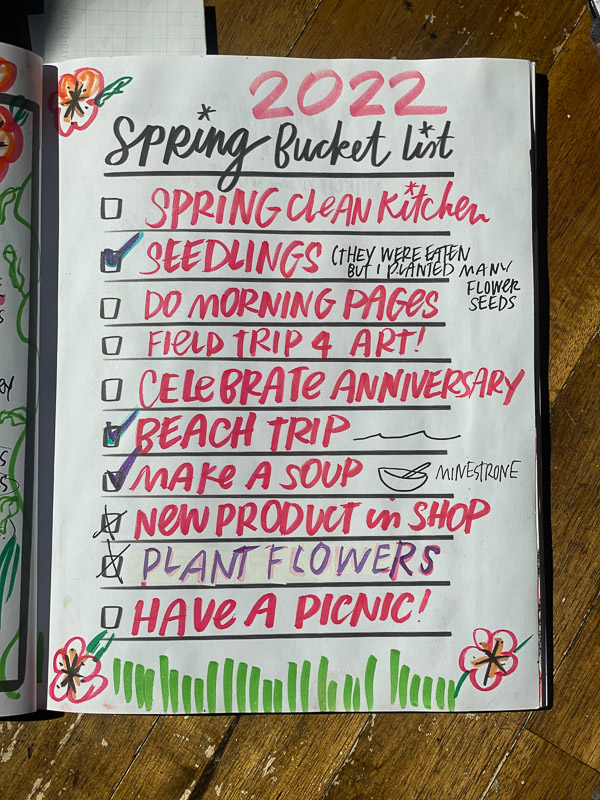 2022
Spring Bucket list
SPRING CLEAN Kitchen
SEEDLINGS (THEY WERE EATEN
BUT I PLANTED MANY
FLOWER
SEEDS
DO MORNING PAGES
FIELD TRIP 4 ART!
CELEBRATE ANNIVERSARY
BEACH TRIP
MAKE A SOUP MINESTRONE
NEW PRODUCT in SHOP
PLANT FLOWERS
HAVE A PICNIC!